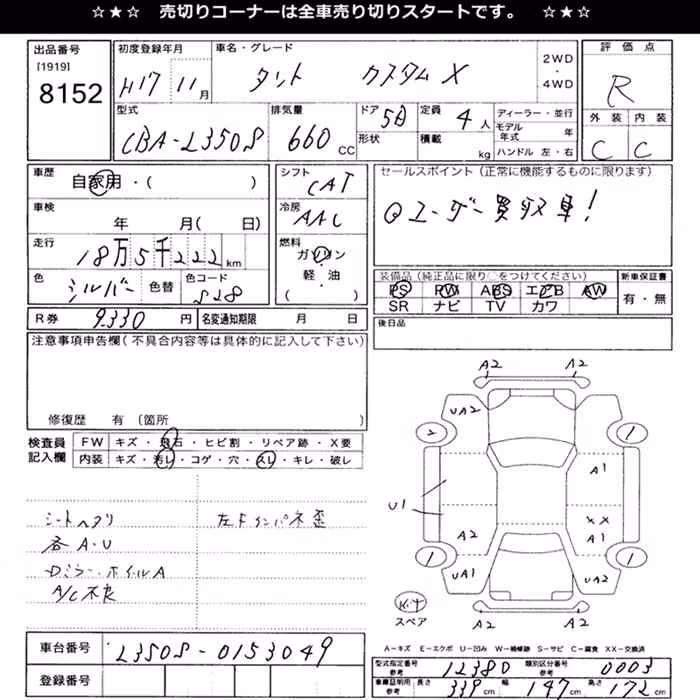 ☆★☆ 売切りコーナーは全車売り切りスタートです。 ☆★☆
出品番号
[1919]
8152
初度登録年月
H17 11月
車名・グレード
タント カスタムX
2WD
・
4WD
評価点
R
外装 内装
C C
型式
CBA-L350S
排気量
660 CC
ドア 5D
形状
定員 4人
積載 kg
ディーラー・並行
モデル年式 年
ハンドル 左・右
車歴
自家用・( )
車検
年 月( 日)
走行
18万5千222km
色
シルバー
色替
色コード
S28
シフト
CAT
冷房
AAC
燃料
ガソリン
軽・油
( )
セールスポイント(正常に機能するものに限ります)
ユーザー買取車!
装備品(純正品に限り○をつけてください)
PS PW ABS エアB AW
SR ナビ TV カワ
新車保証書
有・無
後日品
R券 9330円
名変通知期限 月 日
注意事項申告欄(不具合内容等は具体的に記入して下さい)
修復歴 有(箇所 )
検査員
記入欄
FW キズ・飛石・ヒビ割・リペア跡・X要
内装 キズ・汚レ・コゲ・穴・スレ・キレ・破レ
シートヘタリ
各A・U
Dミラー・ホイルA
A/C不良
左Fインパネ歪
A2 A2
UA2
2 1
A1
U1
XX
A2 A1
1 1
UA1 UA2
スペア
A2 A2
A-キズ E-エクボ U-凹み W-補修跡 S-サビ C-腐食 XX-交換済
車台番号
L350S-0153049
登録番号
型式指定番号
参考
12380
類別区分番号
参考
0003
車庫証明用
参考
長さ 339cm 幅 147cm 高さ 172cm